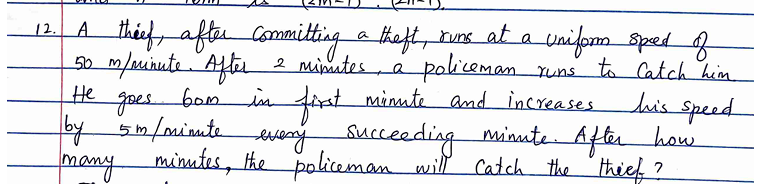 12. A thief, after committing a theft, runs at a uniform speed of
50 m/minute. After 2 minutes, a policeman runs to catch him.
He goes 60m in first minute and increases his speed
by 5m/minute every succeeding minute. After how
many minutes, the policeman will catch the thief?